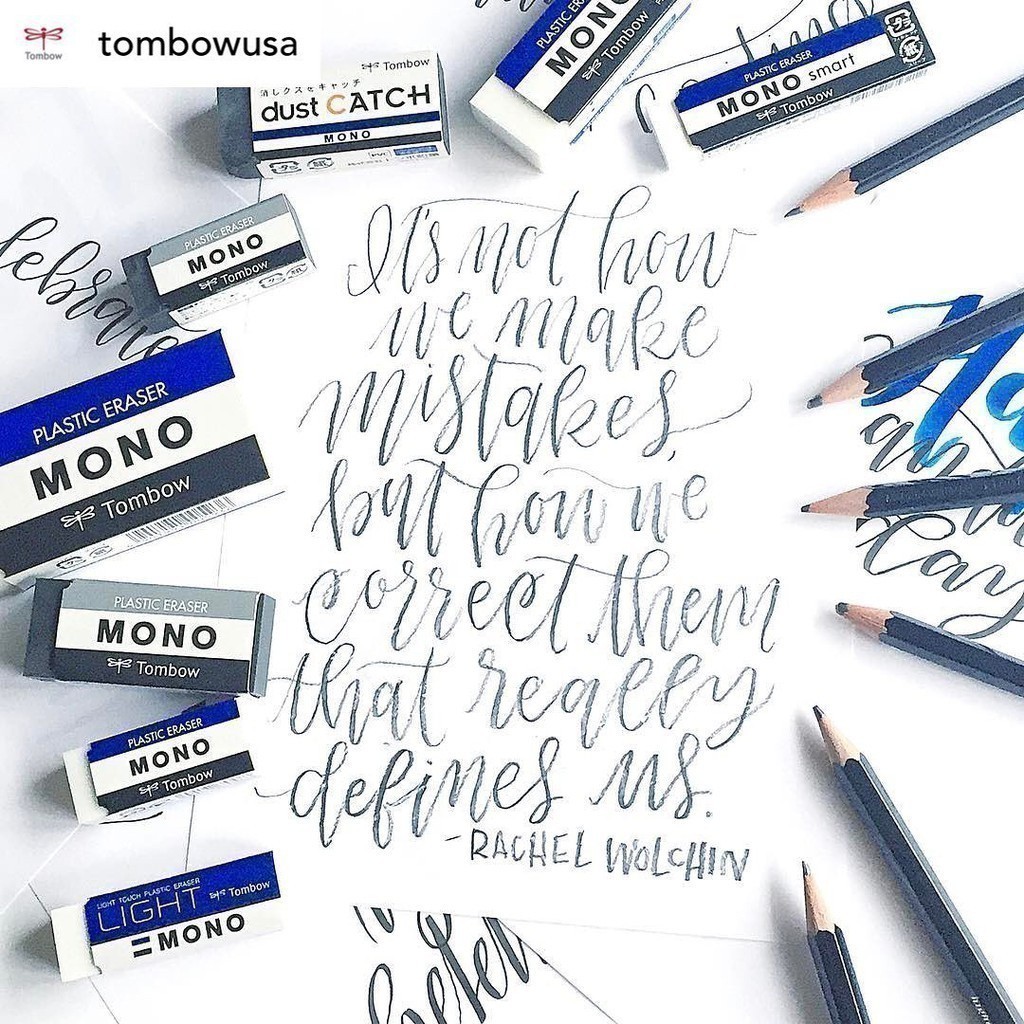 tombowusa
Tombow
Tombow
消しクズをキャッチ
dust CATCH
MONO
PVC
PLASTIC ERASER
MONO
Tombow
PLASTIC ERASER
MONO smart
Tombow
PLASTIC ERASER
MONO
Tombow
PLASTIC ERASER
MONO
Tombow
PLASTIC ERASER
MONO
Tombow
PLASTIC ERASER
MONO
Tombow
LIGHT TOUCH PLASTIC ERASER
LIGHT Tombow
MONO
It's not how
we make
mistakes,
but how we
correct them
that really
defines us.
-RACHEL WOLCHIN